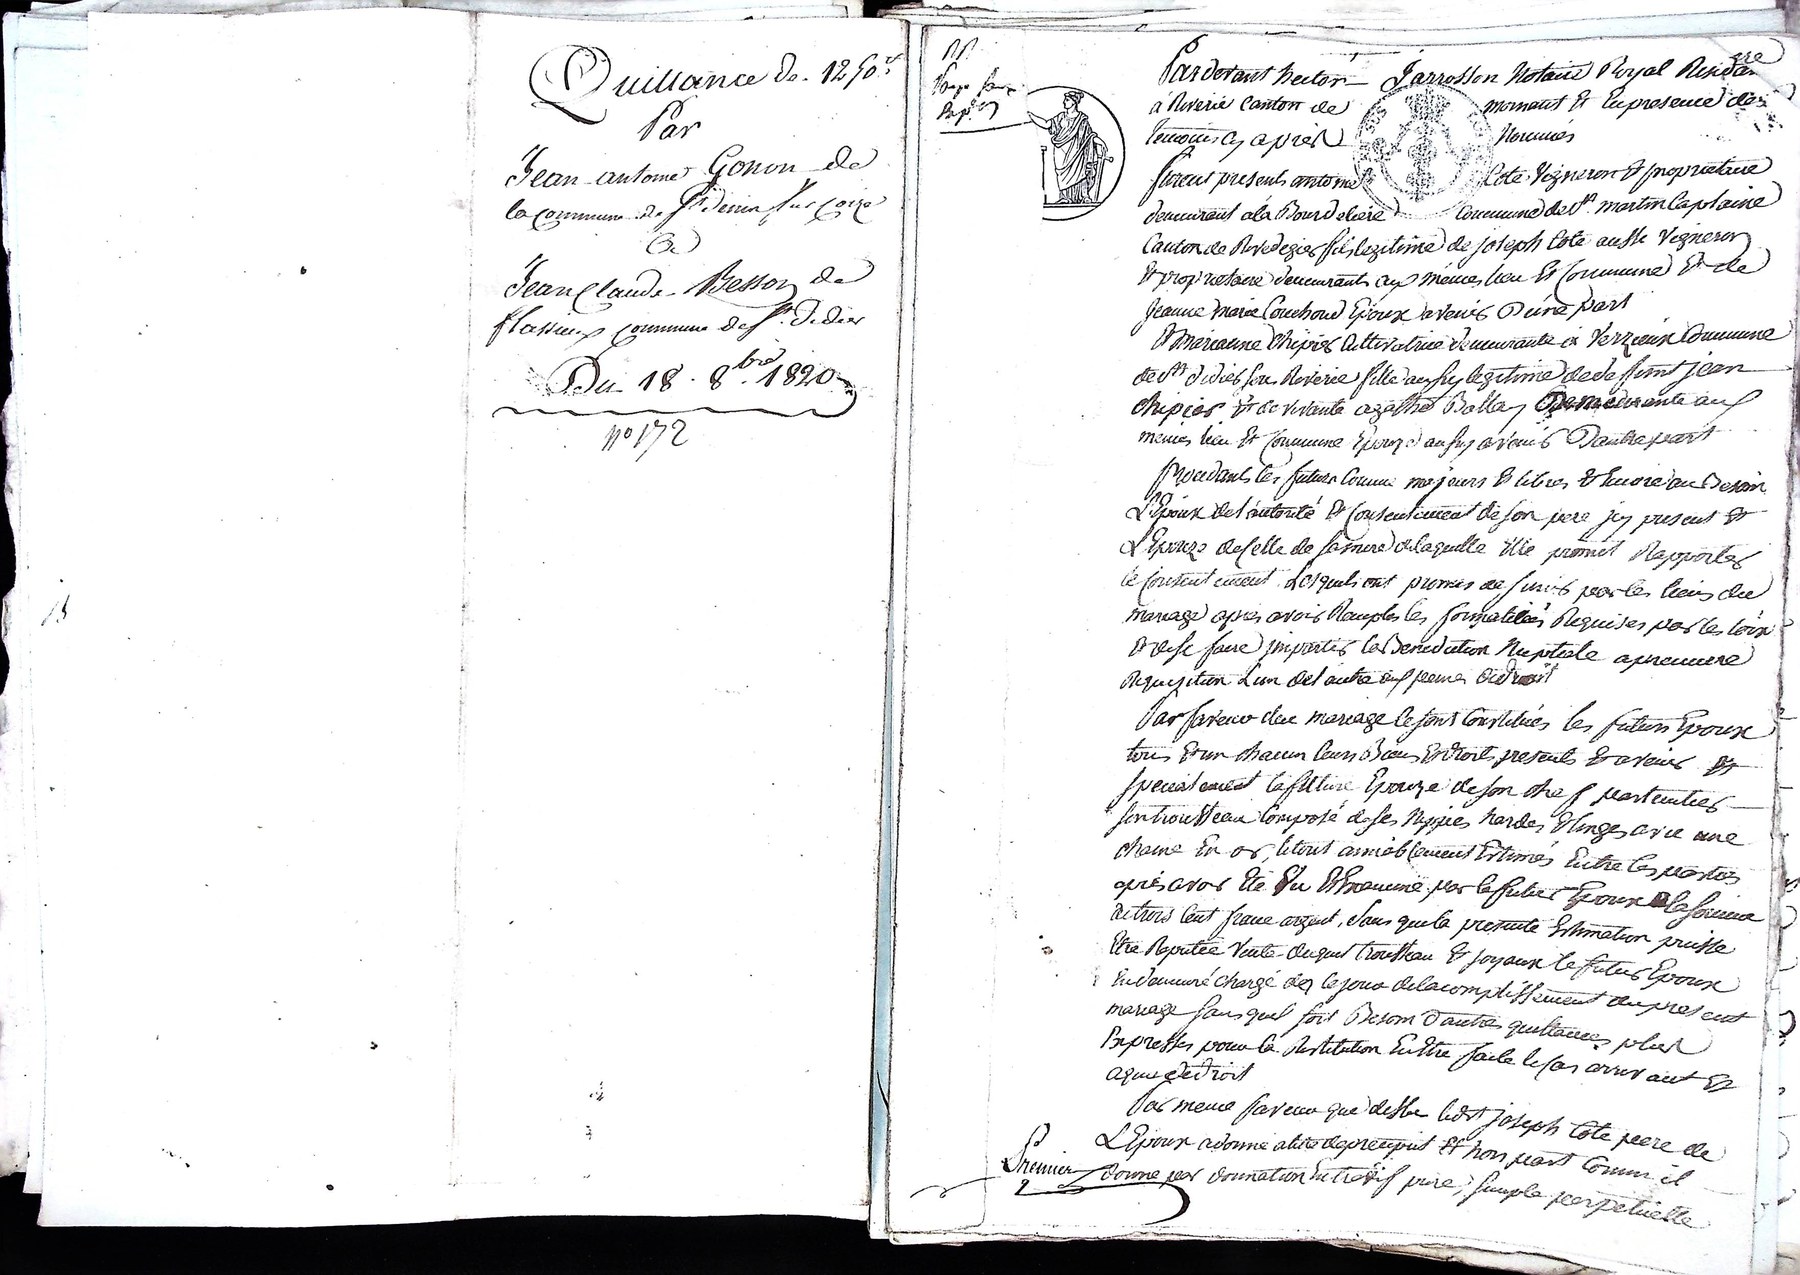 Quittance de 1250 f.
Par
Jean antoine Gonon de
la commune de St denis sur coize
a
Jean Claude Besson de
flassieux commune de St. didier
Du 18. 8bre 1820
n° 172
Pardevant hector Jarrosson Notaire Royal Residant
à Riverie canton de mornant Et En presence des
temoins cy après Nommés
furent presents antoine Cote Vigneron & proprietaire
demeurant à la Bourdeliere Commune de St martin la plaine
Canton de Rivedegier fils legitime de joseph Cote aussi Vigneron
& proprietaire demeurants aux mêmes lieu Et Commune Et de
jeanne marie Couchoud Epoux avenir D'une part
& marianne chipier cultivatrice demeurante à Verzieux Commune
de St didier sous Riverie fille aussy legitime de deffunt jean
chipier & de vivante agathe Ballay Demeurante aux
mêmes lieu Et Commune Epouze aussy avenir D'autre part
procedants les futurs comme majeurs & libres & Encore au Besoin
L'Epoux de l'autorité Et Consentement de son pere jcy present Et
L'Epouze de Celle de sa mere de laquelle Elle promet Rapporter
le Consentement. Lesquels ont promis de s'unir par les liens du
mariage après avoir Remplis les formalités Requises par les loix
& de se faire jmpartir la Benediction Nuptiale a premiere
Requisition L'un de l'autre aux peines de droit
Par faveur du mariage se sont Constitués les futurs Epoux
tous Et un chacun leurs Biens Et droits presents Et avenir Et
specialement la future Epouze de son chef particulier
son trousseau Composé de ses Nippes hardes & linges avec une
chaine En or, le tout amiablement Estimés Entre les parties
après avoir Eté Vu Et Examiné par le futur Epoux a la somme
de trois Cent francs argent. Sans que la presente Estimation puisse
Etre Reputée Vente duquel trousseau & joyaux le futur Epoux
En demeure chargé dez le jour de l'accomplissement du present
mariage sans quel soit Besoin d'autres quittances plus
Expresses pour la Restitution En Etre faite le Cas arrivant Et
a qui de droit
Par meme faveur que dessus ledit joseph Cote pere de
L'Epoux a donné a titre de preciput Et hors part Comme il
Premier
donne par donnation Entrevif pure, simple perpetuelle